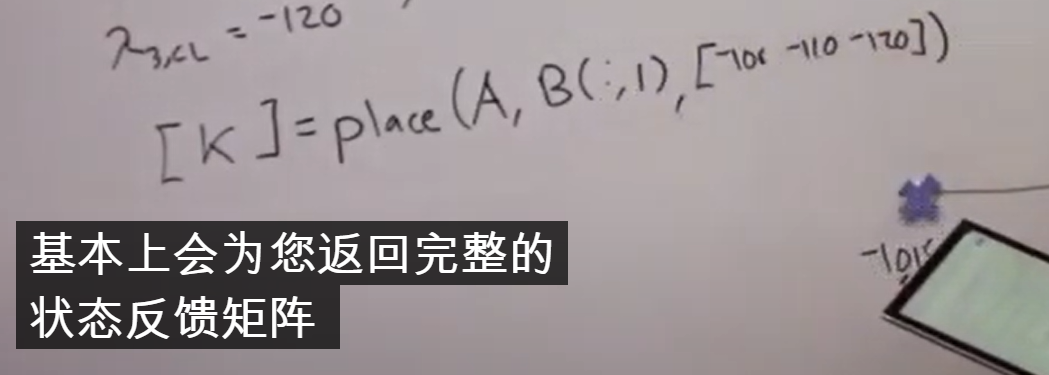 λ₃,CL = -120
[K] = place(A, B(:,1), [-100 -110 -120])
基本上会为您返回完整的
状态反馈矩阵